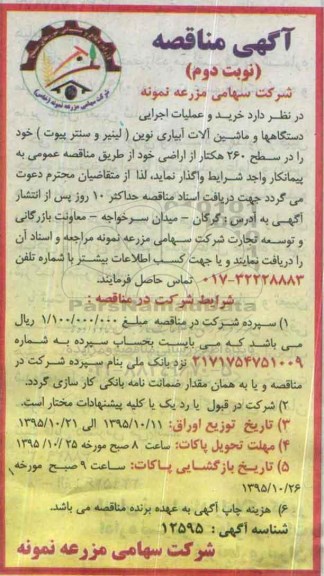 آگهی مناقصه
(نوبت دوم)
شرکت سهامی مزرعه نمونه
در نظر دارد خرید و عملیات اجرایی
دستگاهها و ماشین آلات آبیاری نوین (لینیر و سنتر پیوت) خود
را در سطح ۲۶۰ هکتار از اراضی خود از طریق مناقصه عمومی به
پیمانکار واجد شرایط واگذار نماید، لذا از متقاضیان محترم دعوت
می گردد جهت دریافت اسناد مناقصه حداکثر ۱۰ روز پس از انتشار
آگهی به آدرس: گرگان - میدان سرخواجه - معاونت بازرگانی
و توسعه تجارت شرکت سهامی مزرعه نمونه مراجعه و اسناد آن
را دریافت نمایند و یا جهت کسب اطلاعات بیشتر با شماره تلفن
۰۱۷-۳۲۲۲۸۸۸۳ تماس حاصل فرمایند.
شرایط شرکت در مناقصه :
۱) سپرده شرکت در مناقصه مبلغ ۱/۱۰۰/۰۰۰/۰۰۰ ریال
می باشد که می بایست بحساب سپرده به شماره
۲۱۷۱۷۵۴۷۵۱۰۰۹ نزد بانک ملی بنام سپرده شرکت در
مناقصه و یا به همان مقدار ضمانت نامه بانکی کار سازی گردد.
۲) شرکت در قبول یا رد یک یا کلیه پیشنهادات مختار است.
۳) تاریخ توزیع اوراق: ۱۳۹۵/۱۰/۱۱ الی ۱۳۹۵/۱۰/۲۱
۴) مهلت تحویل پاکات: ساعت ۸ صبح مورخه ۱۳۹۵/۱۰/۲۵
۵) تاریخ بازگشایی پاکات: ساعت ۹ صبح مورخه
۱۳۹۵/۱۰/۲۶
۶) هزینه چاپ آگهی به عهده برنده مناقصه می باشد.
شناسه آگهی : ۱۲۵۹۵
شرکت سهامی مزرعه نمونه